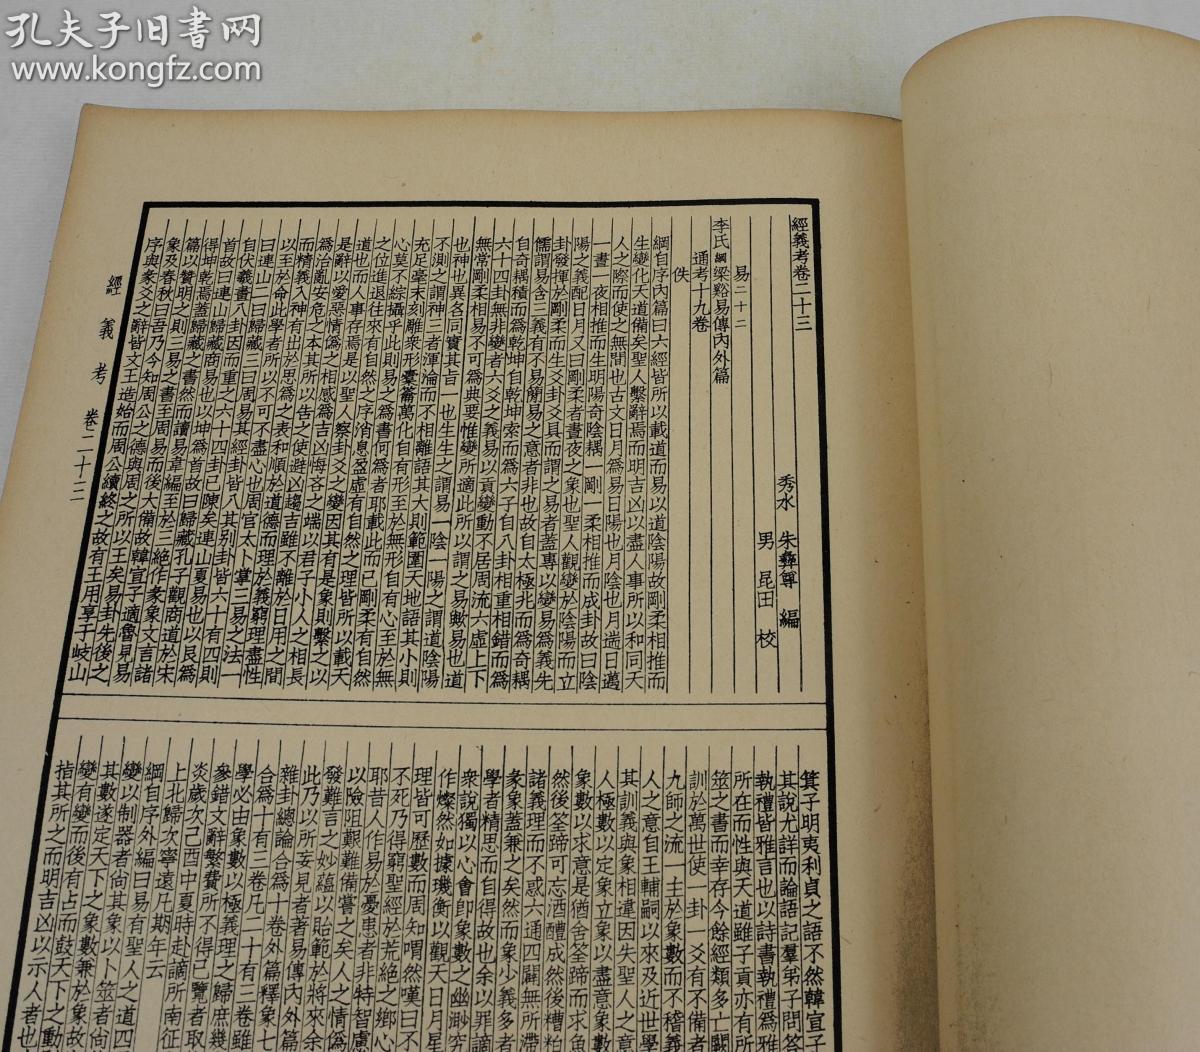 孔夫子旧书网
www.kongfz.com
經義考卷二十三
秀水 朱彝尊 編
男 昆田 校
易二十二
李氏綱梁谿易傳內外篇
通考十九卷
佚
綱自序內篇曰六經皆所以載道而易以道陰陽故剛柔相推而
生變化天道備矣聖人繫辭焉而明吉凶以盡人事所以和同天
人之際而使之無間也古文日月爲易日陽也月陰也月遄日邁
一晝一夜相推而生明陽奇陰耦一剛一柔相推而成卦故曰陰
陽之義配日月又曰剛柔者晝夜之象也聖人觀變於陰陽而立
卦發揮於剛柔而生爻卦爻具而謂之易者蓋專以變易爲義先
儒謂易含三義有不易簡易之意者非也故自太極兆而爲奇耦
自奇耦積而爲乾坤自乾坤索而爲六子自八卦相重相錯而爲
六十四卦無非變者六爻之義易以貢變動不居周流六虛上下
無常剛柔相易不可爲典要惟變所適此所以謂之易歟易也道
也神也異名同實其旨一也生生之謂易一陰一陽之謂道陰陽
不測之謂神三者渾淪而不相離語其大則範圍天地語其小則
充足毫末刻雕衆形橐籥萬化自有形至於無形自有心至於無
心莫不綜攝乎此則易之爲書何爲者耶載此而已剛柔有自然
之位進退往來有自然之序消息盈虛有自然之理皆所以載天
道也而人事存焉是以聖人察卦爻之變因其有是象則繫之以
是辭以愛惡情僞之相感爲吉凶悔吝之端以君子小人之相長
爲治亂安危之本其所以告之使避凶趨吉雖不離於日用之間
而精義入神有出於思爲之表和順於道德而理於義窮理盡性
以至於命此學者所以不可不盡心也周官太卜掌三易之法一
曰連山二曰歸藏三曰周易其經卦皆八其別卦皆六十有四則
自伏羲畫八卦因而重之六十四卦已陳矣連山夏易也以艮爲
首故曰連山歸藏商易也以坤爲首故曰歸藏孔子觀商道於宋
得坤乾焉蓋歸藏之書然而讀易韋編至於三絕作彖象文言諸
篇以贊明之則三易之書至周易而後大備故韓宣子適魯見易
象及春秋曰吾乃今知周公之德與周之所以王矣易卦先後之
序與彖爻之辭皆文王造始而周公續終之故有王用享于岐山
經義考 卷二十三
箕子明夷利貞之語不然韓宣子
其說尤詳而論語記羣弟子問答
執禮皆雅言也以詩書執禮爲雅
所在而性與天道雖子貢亦有所
筮之書而幸存今餘經類多亡闕
訓於萬世使一卦一爻有不備者
九師之流一主於象數而不稽義
人之意自王輔嗣以來及近世學
其訓義與象相違因失聖人之意
人極數以定象立象以盡意象數
象數以求意是猶舍筌蹄而求魚
然後筌蹄可忘酒醴成然後糟粕
諸義理而不惑六通四闢無所滯
彖象蓋兼之矣然而象少義多者
學者精思而自得故也余以罪謫
衆說獨以心會卽象數之幽渺窮
作燦然如據璣衡以觀天日月星
理皆可歷數而周知喟然嘆曰不
不死乃得窮聖經於荒絶之鄉心
耶昔人作易於憂患者非特智慮
以險阻艱難備嘗之矣人之情僞
發難言之妙蘊以貽範於將來余
此乃以所妄見者著易傳內外篇
雜卦總論合爲十卷外篇釋象七
合爲十有三卷凡二十有三卷雖
學必由象數以極義理之歸庶幾
參錯文辭繁費所不得已覽者取
炎歲次己酉中夏時赴謫所南征
上北歸次寧遠凡期年云
綱自序外編曰易有聖人之道四
變以制器者尚其象以卜筮者尚
其數遂定天下之象數兼於象故
變有變而後有占而鼓天下之動
指其所之而明吉凶以示人者也